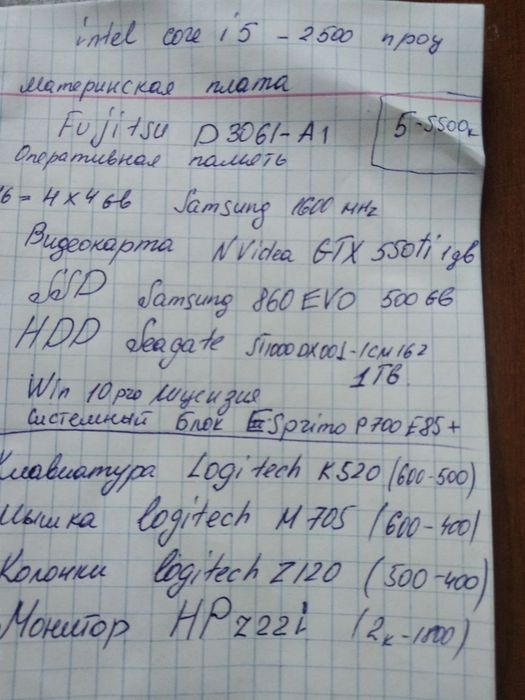 intel core i5 - 2500 проц
Материнская плата
Fujitsu D3061-A1
5-5500к
Оперативная память
16 = 4 x 4 GB Samsung 1600 мнz
Видеокарта NVidea GTX 550ti 1gb
SSD Samsung 860 EVO 500 GB
HDD Seagate ST1000DX001-1CM162
1TB.
Win 10 pro лицензия
Системный блок ESprimo P700 E85+
Клавиатура Logitech K520 (600-500)
Мышка logitech M705 (600-400)
Колонки logitech Z120 (500-400)
Монитор HP Z22i (2к-1800)